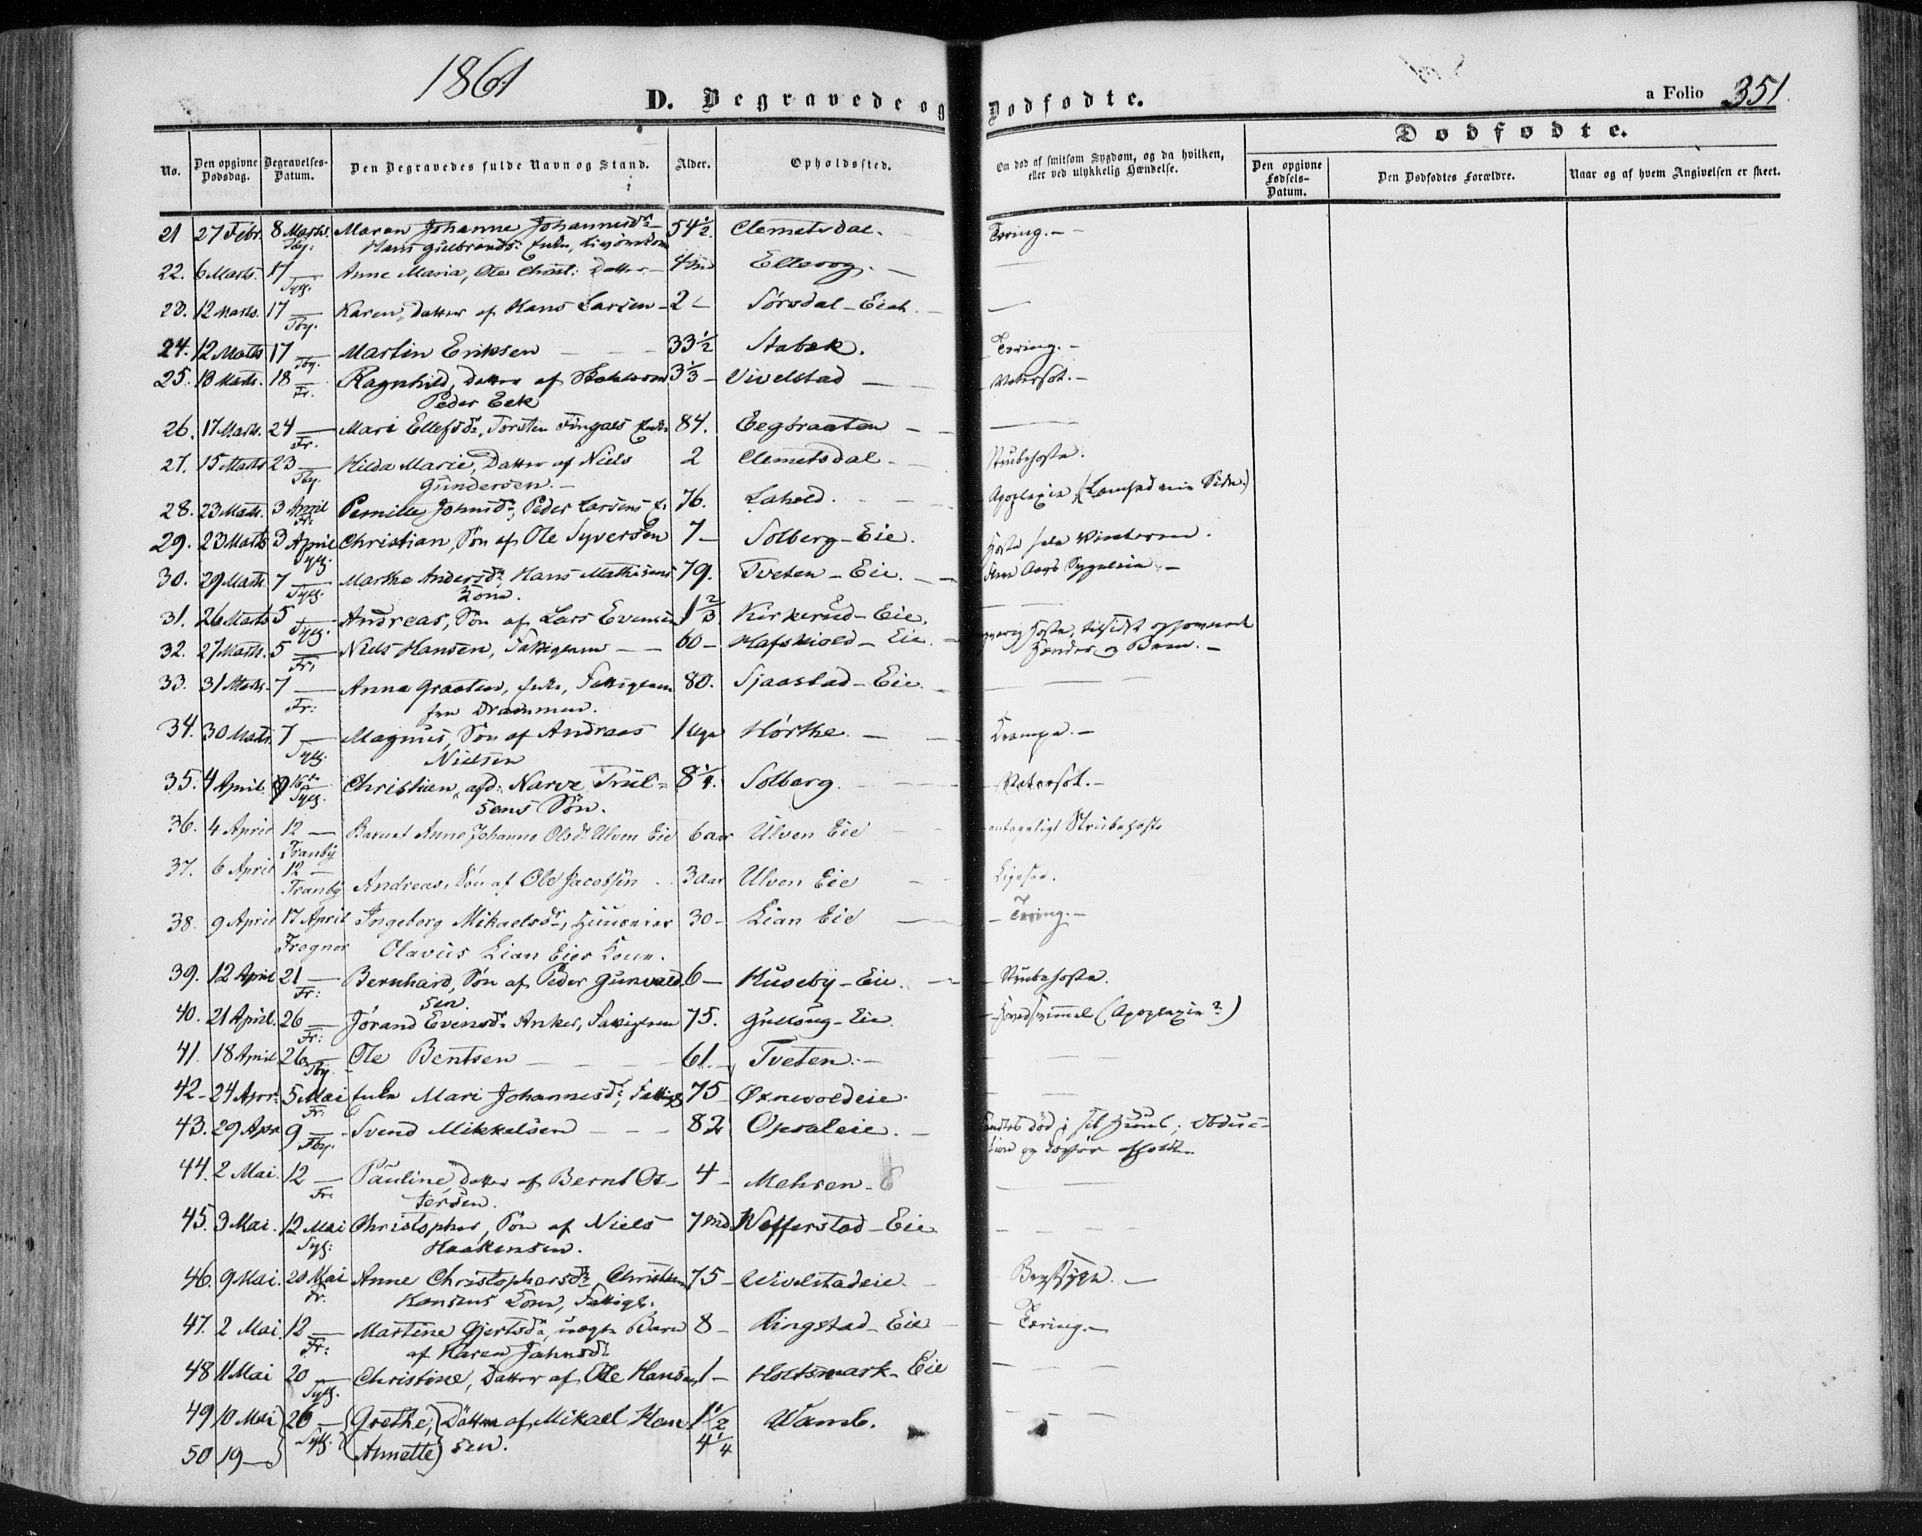 1861
D. Begravede og Dødfødte.
a Folio 351.
Dødfødte.
No. Den opgivne Dødsdag. Begravelses-Datum. Den Begravedes fulde Navn og Stand. Alder. Opholdssted. Om død af smitsom Sygdom, og da hvilken, eller ved ulykkelig Hændelse. Den opgivne Fødsels-Datum. Den Dødfødtes Forældre. Naar og af hvem Angivelsen er skeet.
21 27 Febr. 8 Marts. Maren Johanne Johannesd. 54½ Clemetsdal. Tæring.
Tby. Hans Gulbrands. Enke,
22. 6 Marts. 17 Anne Maria, Ole Christ: Datter 4 Ellevog.
Sylg.
23. 12 Marts. 17 Karen, Datter af Hans Larsen 2 Sørsdal-Eieh.
Tby.
24. 12 Marts 17 Martin Eriksen 33½ Stabæk. Tæring.
Tby.
25. 13 Marts. 18 Ragnhild, Datter af 3⅓ Vivelstad Vatersot.
Fr. Peder Eek
26. 17 Marts. 24 Mari Ellefsd., Torsten Fingals Enke 84. Eegbraaten
Fr.
27. 15 Marts 23 Hilda Marie, Datter af Niels 2 Clemetsdal Strubehoste.
Tby. Gundersen.
28. 23 Marts. 3 April Pernille Johnsd., Peder Larsens E. 76. Lahold. Apoplexie (Lamhed ene Side.)
Fr.
29. 23 Marts 3 April Christian, Søn af Ole Syversen 7 Solberg-Eie. Hoste hele Vinteren.
Sylg.
30. 29 Marts. 7 Marthe Andersd. Hans Mathisens 79. Tveten-Eie. flere Aars Sygeleie
Sylg. Kone.
31. 26 Marts 5 Andreas, Søn af Lars Evensen 1⅔ Kirkerud-Eie.
Sylg.
32. 27 Marts. 5 Niels Hansen, Fattiglem 60 Hafskiold-Eie Hoste, tilsidst opsvulmede
Fr. Hænder og Been.
33. 31 Marts. 7 Anne Graaten, Enke, Fattiglem 80. Sjaastad-Eie
Fr: fra Drammen.
34. 30 Marts. 7 Magnus, Søn af Andreas 1 Uge Hørthe. Krampe.
Sylg. Nielsen
35. 4 April. 16 Christian, afd: Narve Trul- 8¼. Solberg. Vatersot.
Sylg. sens Søn.
36. 4 April 12 Barnet Anne Johanne Olsd. Ulven Eie 6 aar Ulven Eie antageligt Strubehoste
Tranby
37. 6 April 12 Andreas, Søn af Ole Jacobsen 3 aar Ulven Eie Ligesaa.
Tranby
38. 9 April 17 April Ingeborg Mikaelsd., Huusmand 30 Lian Eie Tæring.
Frogner Olavus Lian Eies Kone.
39. 12 April 21 Bernhard, Søn af Peder Gunvald 6 Huseby-Eie. Strubehoste.
Fr: sen.
40. 21 April. 26 Jørand Evensd. Anker, Fattiglem 75. Gullaug-Eie. Hovedsvimmel (Apoplexie?)
Fr:
41. 18 April 26 Ole Bentsen 61. Tveten.
Tby.
42 24 Apr: 5 Mai Enke Mari Johannesd., Fattigl. 75 Oxnevoldeie.
Fr.
43. 29 Apr 9 Svend Mikkelsen 82 Opsaleie. fandtes død i sit Huus; Obduc-
Tby. tion og Forhør afholdt.
44. 2 Mai. 12 Pauline, Datter af Bernt Ot- 4 Mehren
Fr. tersen.
45. 3 Mai. 12 Mai Christopher, Søn af Niels 7 Wefferstad-Eie
Sylg: Haakensen.
46. 9 Mai. 20 Mai Anne Christophersd. Christian 75 Wivelstadeie. Brystsyge.
Fr. Hansens Kone, Fattigl.
47. 2 Mai 12 Martine Gjertsd., uægte Barn 8 Ringstad-Eie Tæring.
Fr: af Karen Jahnsd.
48 11 Mai 20 Christine, Datter af Ole Hansen 1 Holtsmark-Eie
Sylg.
49 10 Mai 26 Grethe, Døttre af Mikael Han 1½ Wamb.
50 19 Sylg. Annette sen. 4¼